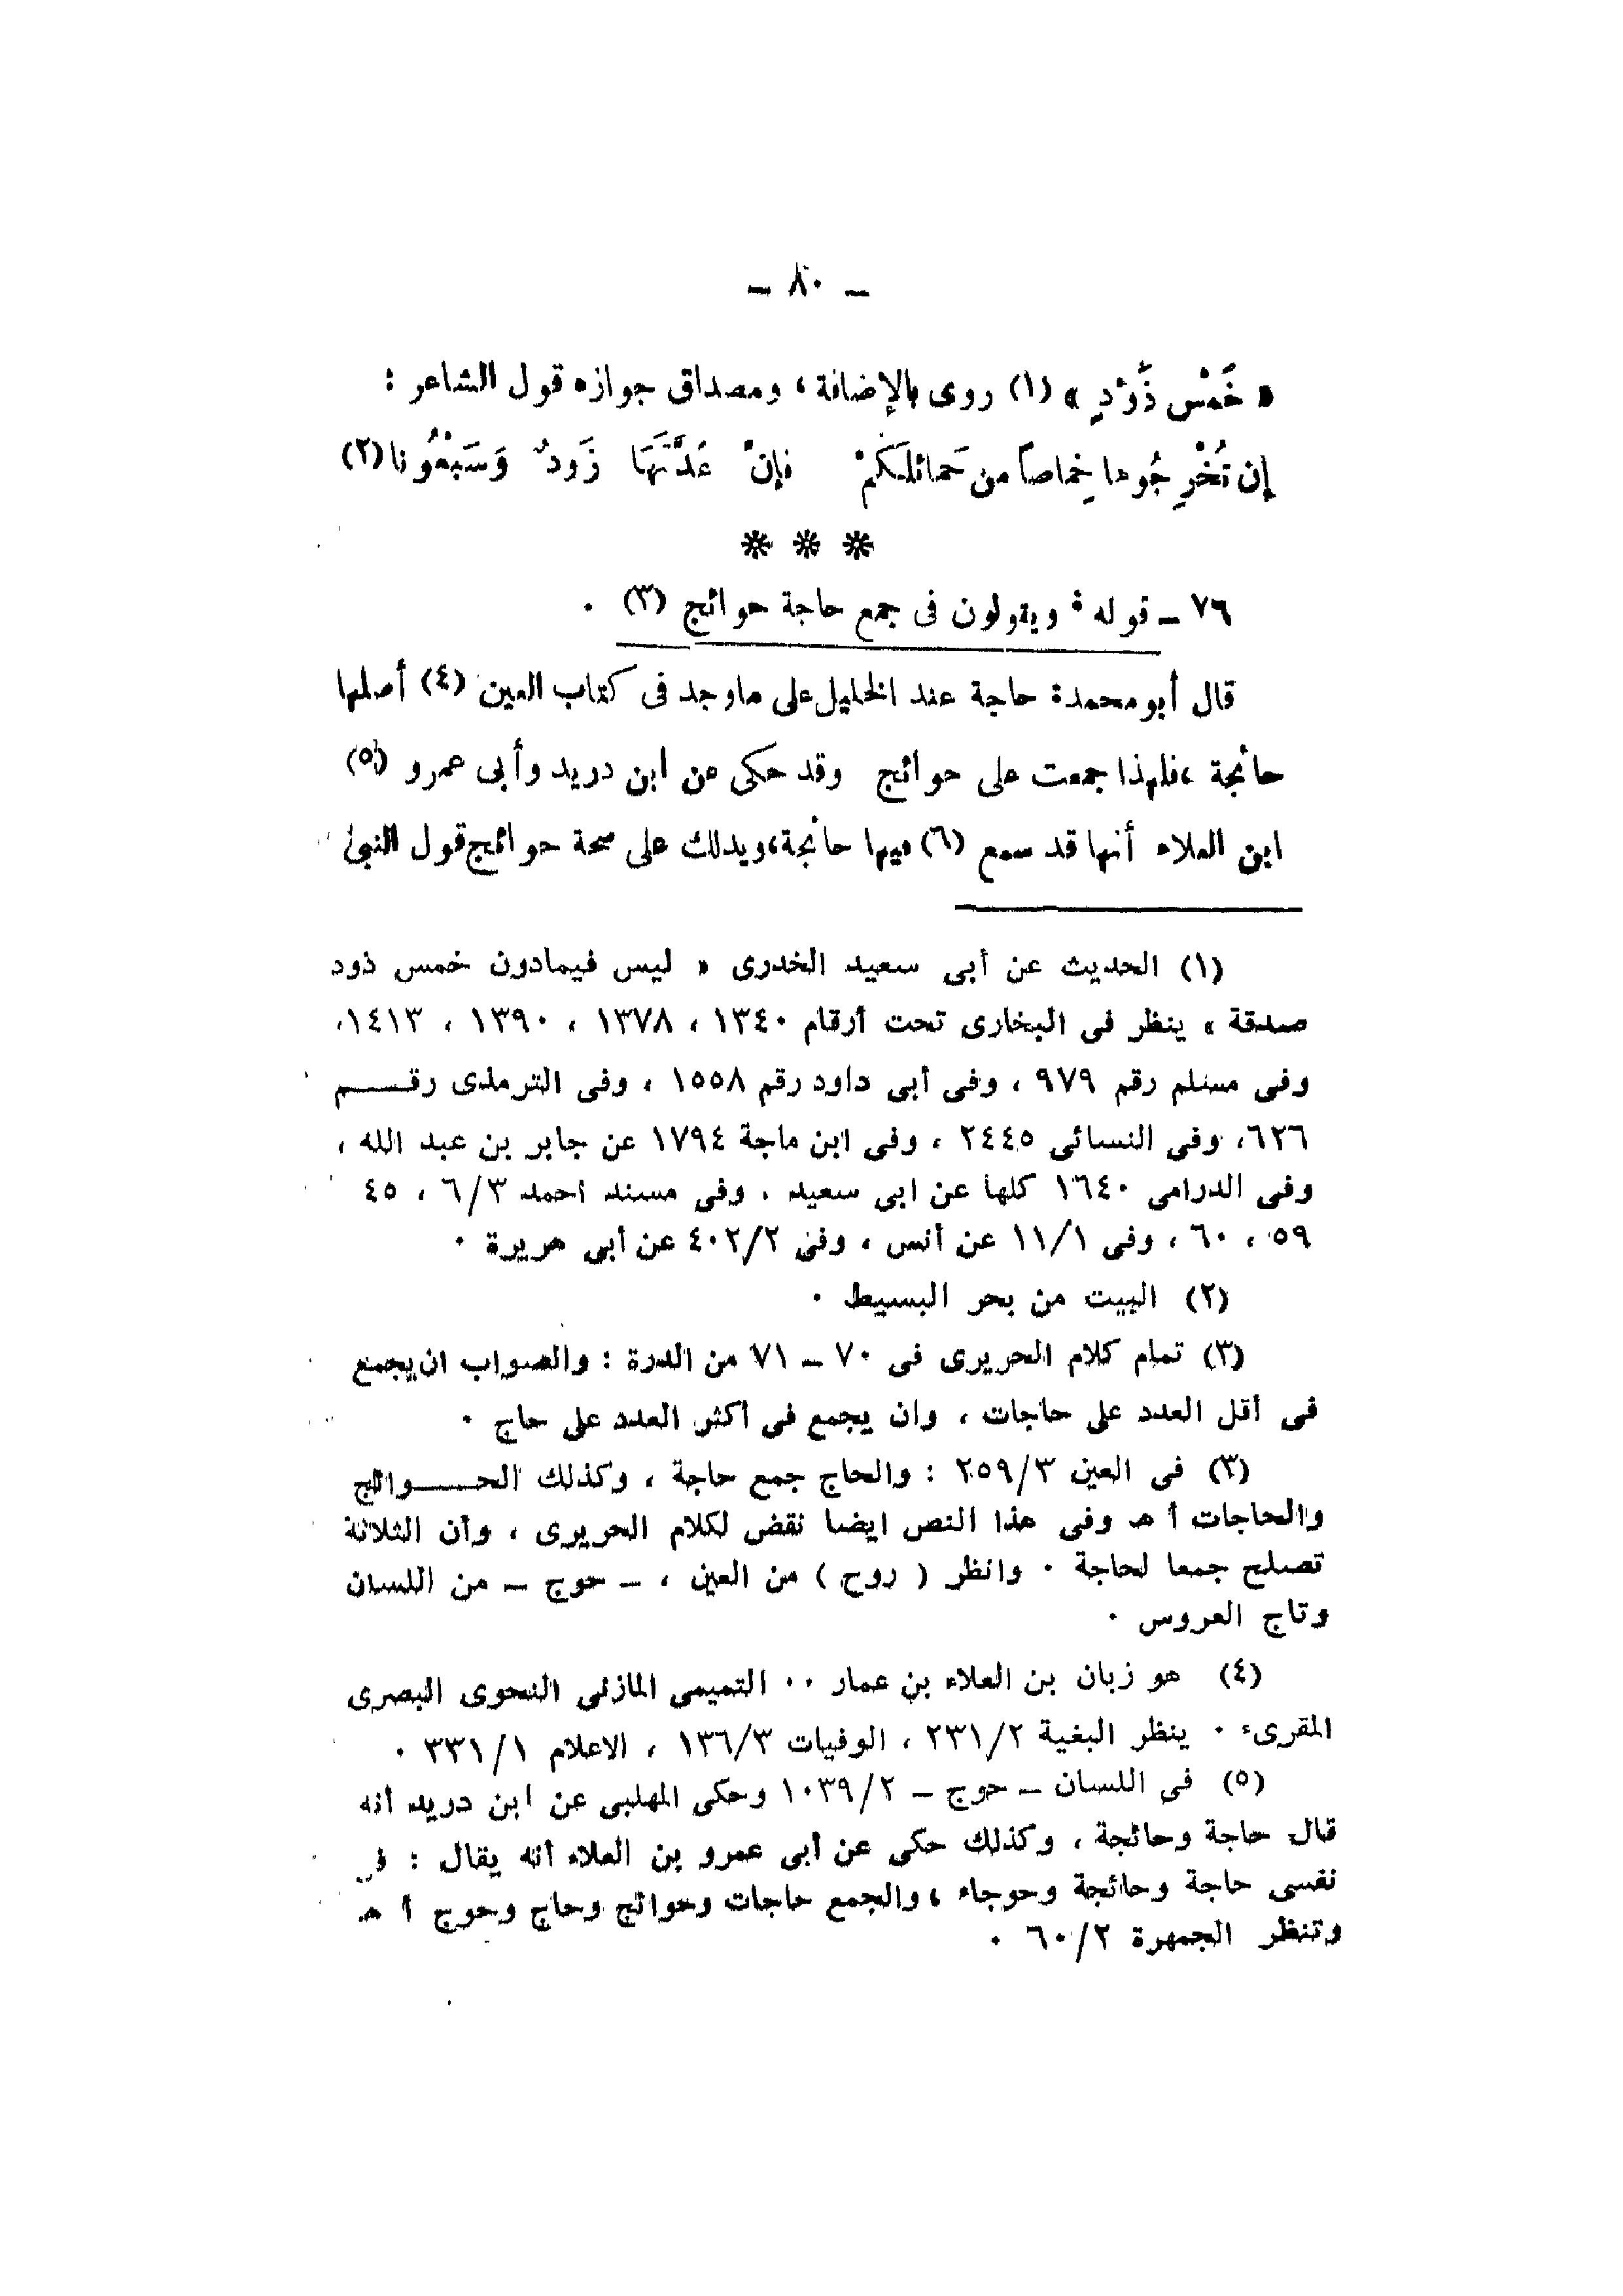 ـ ٨٠ ـ
« خَمْس ذَوْدٍ » (١) روى بالإضافة ، ومصداق جوازه قول الشاعر :
إن تُخْرِجُوها خِماصاً من حَمائلَكمْ فإنْ عَدَّتَهَا زَودٌ وَسَبْعُونا (٢)
* * *
٧٦ ـ قوله : ويقولون فى جمع حاجة حوائج (٣) .
قال أبو محمد : حاجة عند الخليل على ماوجد فى كتاب العين (٤) أصلها
حائجة ، فلهذا جمعت على حوائج وقد حكى عن ابن دريد وأبى عمرو (٥)
ابن العلاء أنها قد سمع (٦) فيها حائجة ، ويدلك على صحة حوائج قول النبى
(١) الحديث عن أبى سعيد الخدرى « ليس فيمادون خمس ذود
صدقة » ينظر فى البخارى تحت أرقام ١٣٤٠ ، ١٣٧٨ ، ١٣٩٠ ، ١٤١٣،
وفى مسلم رقم ٩٧٩ ، وفى أبى داود رقم ١٥٥٨ ، وفى الترمذى رقـــــم
٦٢٦، وفى النسائى ٢٤٤٥ ، وفى ابن ماجة ١٧٩٤ عن جابر بن عبد الله ،
وفى الدرامى ١٦٤٠ كلها عن ابى سعيد . وفى مسند احمد ٦/٣ ، ٤٥
٥٩ ، ٦٠ ، وفى ١١/١ عن أنس ، وفى ٤٠٢/٢ عن أبى هريرة ٠
(٢) البيت من بحر البسيط ٠
(٣) تمام كلام الحريرى فى ٧٠ ـ ٧١ من الدرة : والصواب ان يجمع
فى أقل العدد على حاجات ، وان يجمع فى أكثر العدد على حاج ٠
(٣) فى العين ٢٥٩/٣ : والحاج جمع حاجة ، وكذلك الحـــــوائج
والحاجات أ هـ وفى هذا النص ايضا نقض لكلام الحريرى ، وأن الثلاثة
تصلح جمعا لحاجة ٠ وانظر ( روح ) من العين ، ـ حوج ـ من اللسان
وتاج العروس ٠
(٤) هو زبان بن العلاء بن عمار ٠٠ التميمى المازنى النحوى البصرى
المقرىء ٠ ينظر البغية ٢٣١/٢ ، الوفيات ١٣٦/٣ ، الاعلام ٣٣١/١ ٠
(٥) فى اللسان ـ حوج ـ ١٠٣٩/٢ وحكى المهلبى عن ابن دريد أنه
قال حاجة وحائجة ، وكذلك حكى عن أبى عمرو بن العلاء أنه يقال : فى
نفسى حاجة وحائجة وحوجاء ، والجمع حاجات وحوائج وحاج وحوج أ هـ
وتنظر الجمهرة ٦٠/٢ ٠